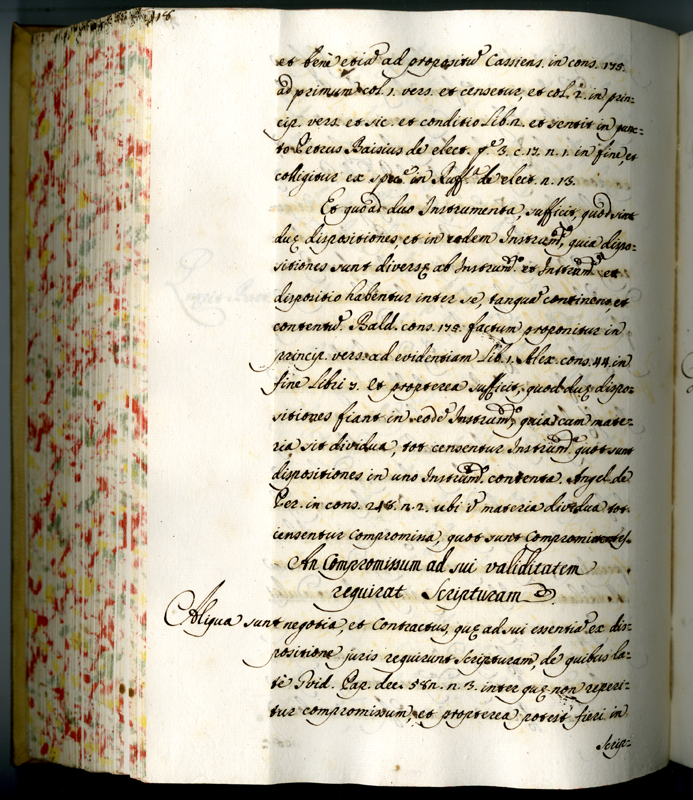 et bene etia᷉ ad propositu᷉ Cassiens. in cons. 175.
ad primum col. 1. vers. et censetur, et col. 2. in prin=
cip. vers. et sic. et conditio Lib. n. et sentit in punc=
to Petrus Baisius de elect. c. 17. n. 1. in fine, et
colligitur ex in Ruff. de elect. n. 13.
Et quoad duo Instrumenta, sufficit, quod sint
duę dispositiones et in eodem Instrum.º, quia dispo=
sitiones sunt diversę ab Instrum.º et Instrum. et
dispositio habentur inter se, tanqua᷉ continens, et
contentu᷉. Bald. cons. 175. factum proponitur in
princip. vers. ad evidentiam Lib. 1. Alex. cons. 44. in
fine Libri 3. Et propterea sufficit, quod duę dispo=
sitiones fiant in eod.º Instrum.º, quia cum mate=
ria sit dividua, tot censentur Instrum.ª quot sunt
dispositiones in uno Instrum.º contenta. Angel. de
Per. in cons. 248. n. 2. ubi materia dividua tot
censentur Compromissa, quot sunt Compromittentes.
An Compromissum ad sui validitatem
requirat Scripturam
Aliqua sunt negotia, et Contractus, quę ad sui essentia᷉ ex dis=
positione juris requirunt Scripturam, de quibus la=
tè Gvid. Pap. dec. 58n. n. 3. inter quę non reperi=
tur compromissum, et propterea potest fieri in
Scrip=